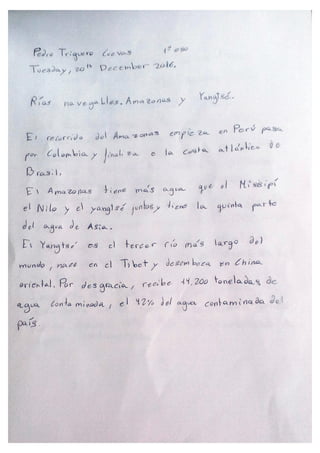 Pedro Triguero Cuevas 1º eso
Tuesday, 20th December 2016.
Ríos navegables. Amazonas y Yangtsé.
El recorrido del Amazonas empieza en Perú pasa
por Colombia y finaliza e la costa atlántica de
Brasil.
El Amazonas tiene más agua que el Misisipí
el Nilo y el yangtsé juntos y tiene la quinta parte
del agua de Asia.
El Yangtsé es el tercer río más largo del
mundo, nace en el Tibet y desemboca en China
oriental. Por desgracia, recibe 14,200 toneladas de
agua contaminada, el 42% del agua contaminada del
país.